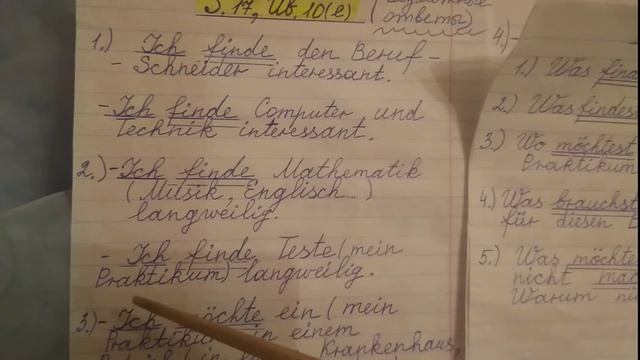 S. 17, Üb. 10(e) (возможные
ответы)
1.) Ich finde den Beruf -
- Schneider interessant.
- Ich finde Computer und
Technik interessant.
2.) - Ich finde Mathematik
(Musik, Englisch...)
langweilig.
- Ich finde Teste (mein
Praktikum) langweilig.
3.) - Ich möchte ein (mein
Praktikum in einem
Krankenhaus,
4.) -
1.) Was
2.) Was
3.) Wo möchtest
Praktikum
4.) Was
für diesen
5.) Was
nicht
Warum